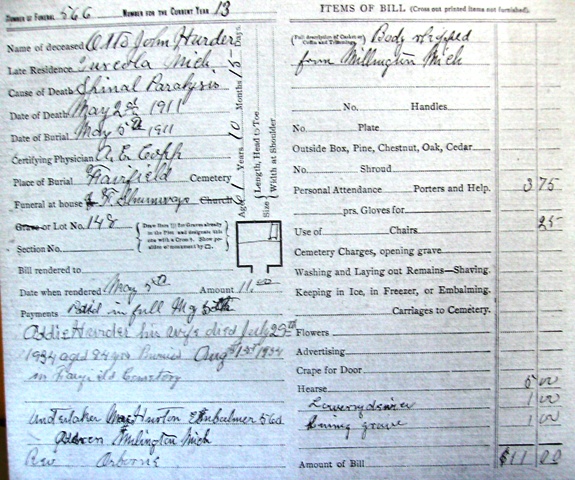 NUMBER OF FUNERAL 566 NUMBER FOR THE CURRENT YEAR 13
Name of deceased Otto John Hurder
Late Residence Tuscola Mich
Cause of Death Spinal Paralysis
Date of Death May 2nd 1911
Date of Burial May 5th 1911
Certifying Physician A. E. Copp
Place of Burial Fairfield Cemetery
Funeral at house F. Shumways Church
Grave or Lot No. 148
Section No.
Draw Here III for Graves already in the Plot and designate this one with a Cross †. Show position of monument by □.
Age Years 10 Months 15 Days
Size Length, Head to Toe
Width at Shoulder
Bill rendered to
Date when rendered May 5th Amount 11.00
Payments Paid in full
Addie Hurder his wife died July 29th
1934 aged 84 yrs Buried Aug 1st 1934
in Fairfield Cemetery
Undertaker Embalmer 560
Millington Mich
Rev Osborne
ITEMS OF BILL (Cross out printed items not furnished).
(Full description of Casket or Coffin and Trimmings) Body shipped
from Millington Mich
No. Handles
No. Plate
Outside Box, Pine, Chestnut, Oak, Cedar
No. Shroud
Personal Attendance Porters and Help. 3 75
prs. Gloves for
Use of Chairs 25
Cemetery Charges, opening grave
Washing and Laying out Remains—Shaving.
Keeping in Ice, in Freezer, or Embalming.
Carriages to Cemetery.
Flowers
Advertising
Crape for Door
Hearse 5 00
Lowery device 1 00
grave 1 00
Amount of Bill $11 00